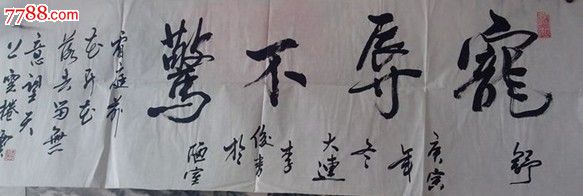 7788.com
寵辱不驚
看庭前
花开花
落去留無
意望天
上雲捲雲
舒
庚寅
年
冬
大連
李
俊
於
陋室